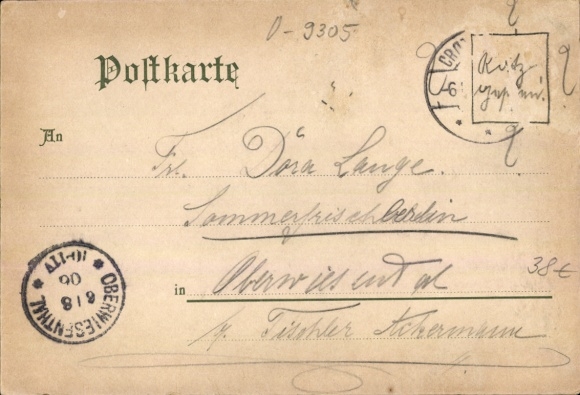 D-9305
Postkarte
An
Frl. Dora Lange.
Sommerfrischlerin
in Oberwiesenthal
38€
b/ Tischler Ackermann
OBERWIESENTHAL
6 1 8
06
10-11V